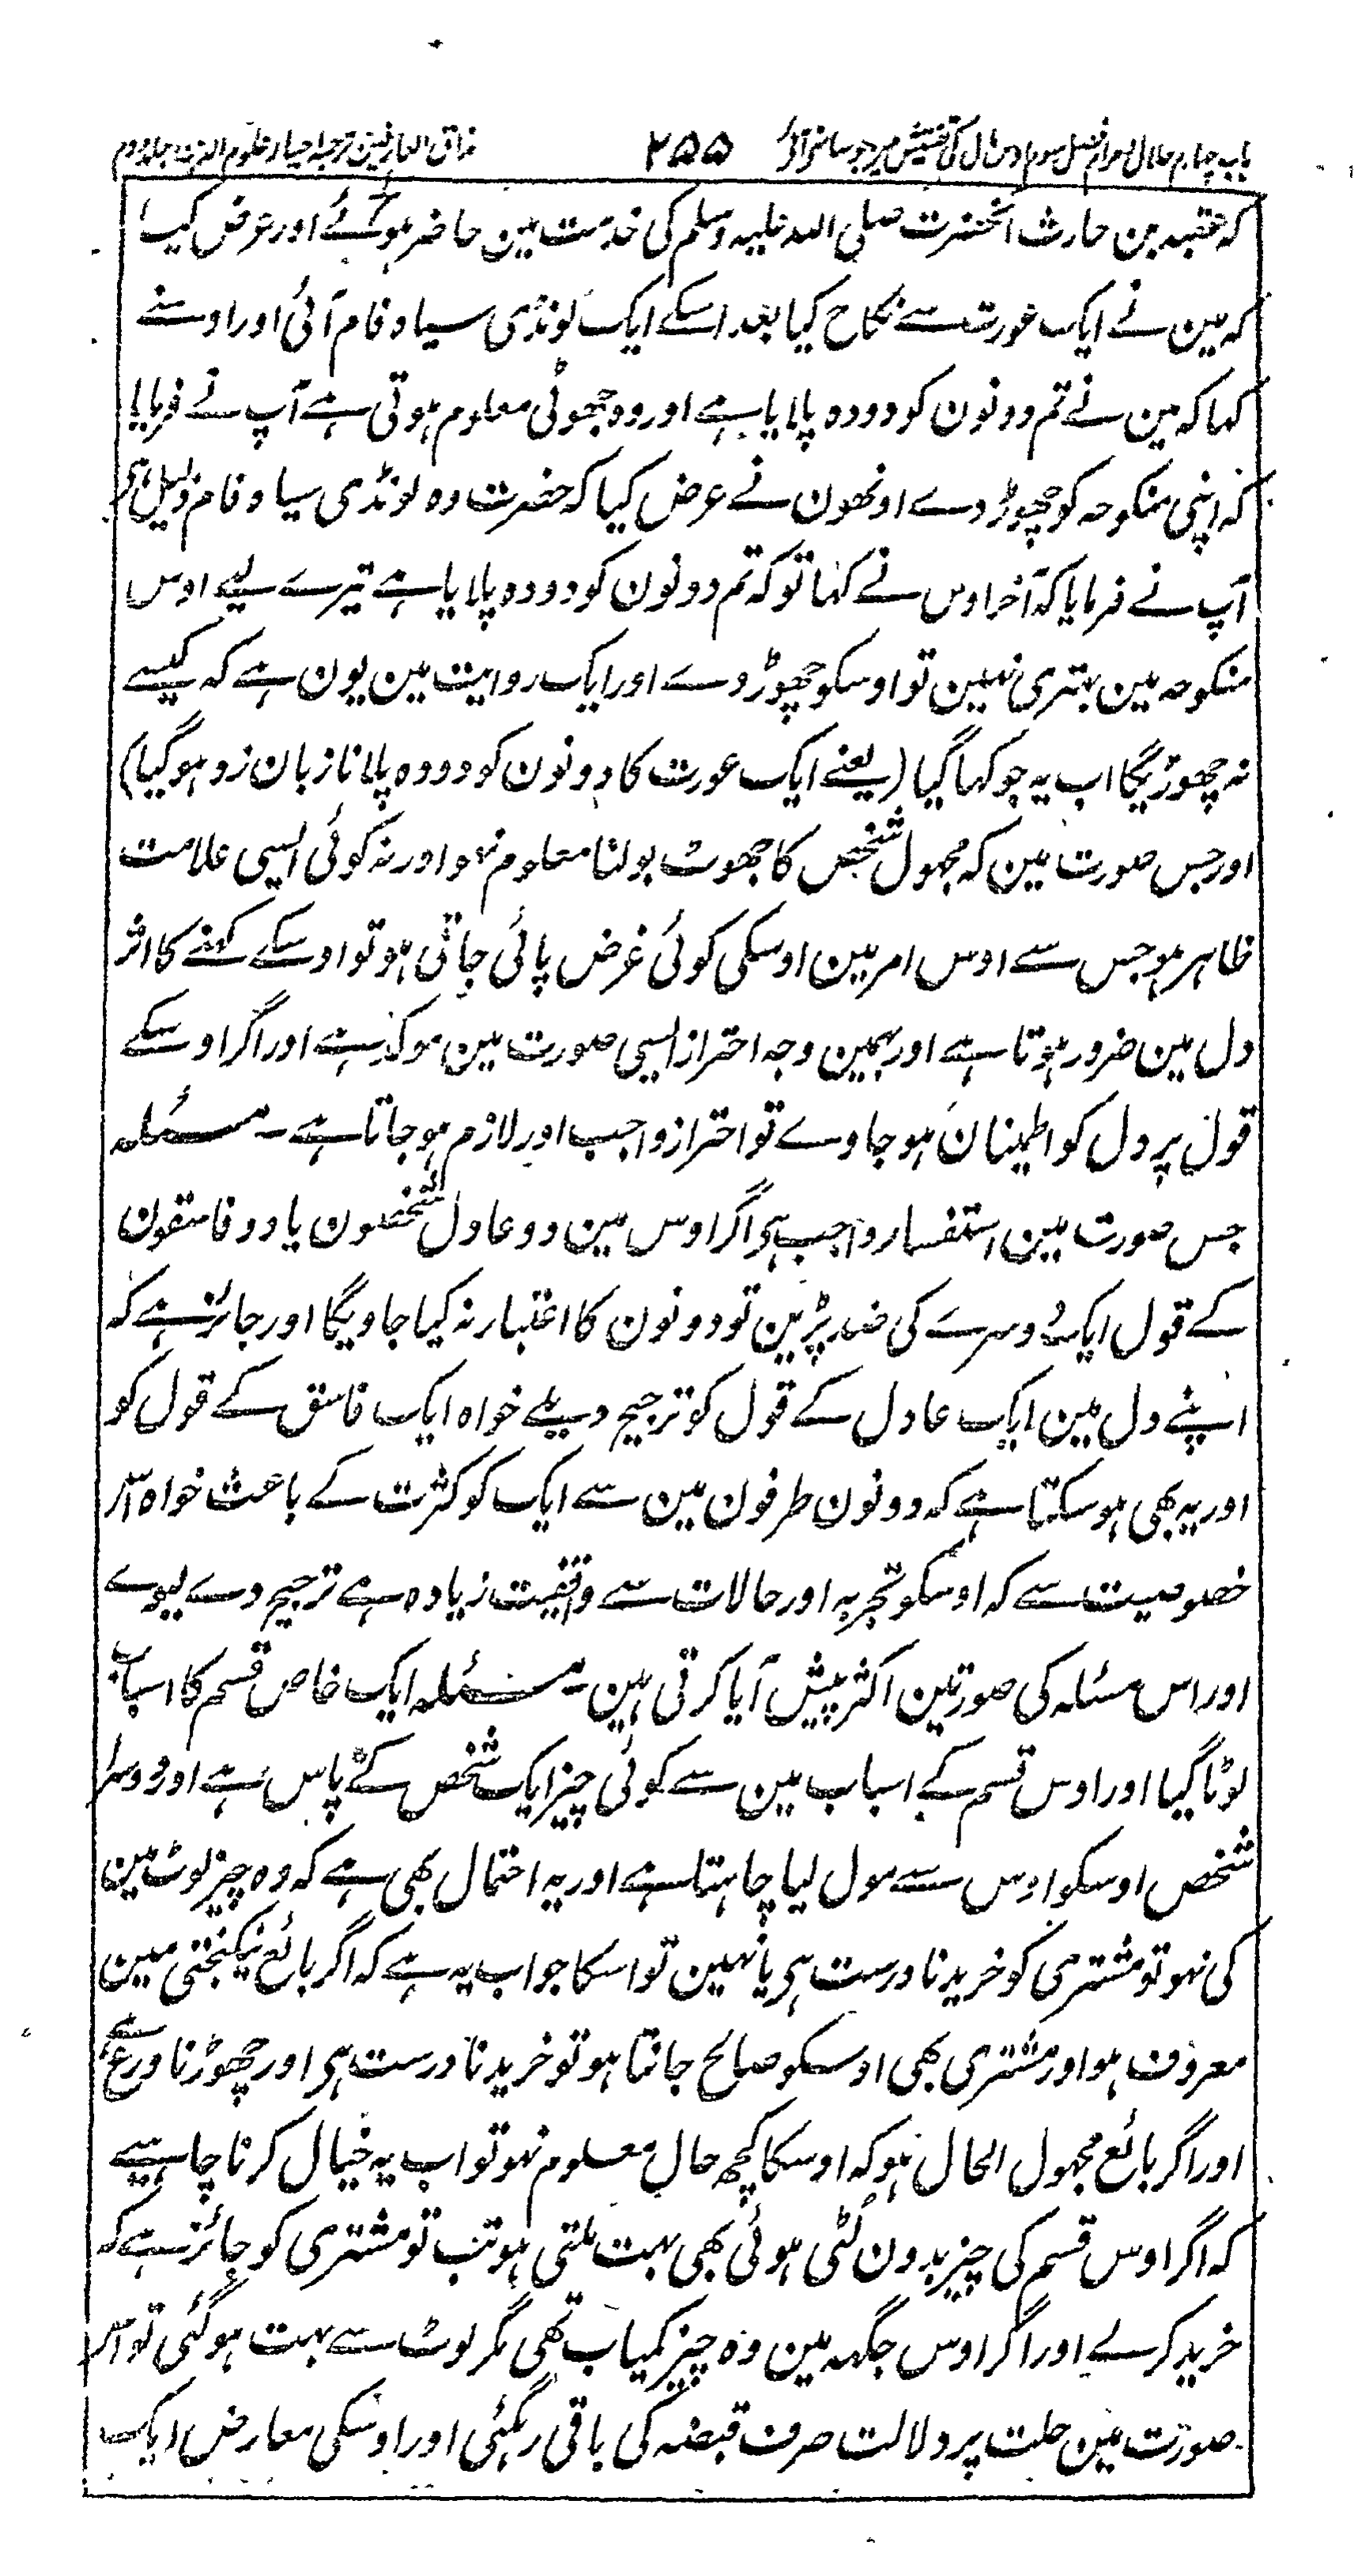 باب چہارم حلال وحرام فصل سوم اوس مال کی تفتیش میں جو سامنے آئے ۲۵۵ مذاق العارفین ترجمہ احیاء علوم الدین جلد دوم
کہ عقبہ بن حارث آنحضرت صلی اللہ علیہ وسلم کی خدمت مین حاضر ہوئے اور عرض کیا
کہ مین نے ایک عورت سے نکاح کیا بعد اسکے ایک لونڈی سیاہ فام آئی اور اوسنے
کہا کہ مین نے تم دونون کو دودہ پلایا ہے اور وہ جھوٹی معلوم ہوتی ہے آپ نے فرمایا
کہ اپنی منکوحہ کو چھوڑ دے اونھون نے عرض کیا کہ حضرت وہ لونڈی سیاہ فام ذلیل ہی
آپ نے فرمایا کہ آخر اوس نے کہا تو کہ تم دونون کو دودہ پلایا ہے تیرے لیے اوس
منکوحہ مین بہتری نہین تو اوسکو چھوڑ دے اور ایک روایت مین یون ہے کہ کیسے
نہ چھوڑیگا اب یہ جو کہا گیا (یعنے ایک عورت کا دونون کو دودہ پلانا زبان زد ہو گیا)
اور جس صورت مین کہ مجہول شخص کا جھوٹ بولنا معلوم نہو اور نہ کوئی ایسی علامت
ظاہر ہو جس سے اوس امر مین اوسکی کوئی غرض پائی جاتی ہو تو اوسکے کہنے کا اثر
دل مین ضرور ہوتا ہے اور بہمین وجہ احتراز ایسی صورت مین موکد ہے اور اگر اوسکے
قول پر دل کو اطمینان ہو جاوے تو احتراز واجب اور لازم ہو جاتا ہے۔ مسئلہ
جس صورت مین استفسار واجب ہی اگر اوس مین دو عادل شخصون یا دو فاسقون
کے قول ایک دوسرے کی ضد پڑین تو دونون کا اعتبار نہ کیا جاویگا اور جائز ہے کہ
اپنے دل مین ایک عادل کے قول کو ترجیح دیلے خواہ ایک فاسق کے قول کو
اور یہ بھی ہو سکتا ہے کہ دونون طرفون مین سے ایک کو کثرت کے باعث خواہ اس
خصوصیت سے کہ اوسکو تجربہ اور حالات سے واقفیت زیادہ ہے ترجیح دے لیوے
اور اس مسئلہ کی صورتین اکثر پیش آیا کرتی ہین۔ مسئلہ ایک خاص قسم کا اسباب
لوٹا گیا اور اوس قسم کے اسباب مین سے کوئی چیز ایک شخص کے پاس ہے اور دوسرا
شخص اوسکو اوس سے مول لیا چاہتا ہے اور یہ احتمال بھی ہے کہ وہ چیز لوٹ مین
کی نہو تو مشتری کو خریدنا درست ہی یا نہین تو اسکا جواب یہ ہے کہ اگر بائع نیکبختی مین
معروف ہو اور مشتری بھی اوسکو صالح جانتا ہو تو خریدنا درست ہی اور چھوڑنا ورع ہے
اور اگر بائع مجہول الحال ہو کہ اوسکا کچھ حال معلوم نہو تو اب یہ خیال کرنا چاہیے
کہ اگر اوس قسم کی چیز بدون لٹی ہوئی بھی بہت ملتی ہو تب تو مشتری کو جائز ہے کہ
خرید کرلے اور اگر اوس جگہہ مین وہ چیز کمیاب تھی مگر لوٹ سے بہت ہو گئی تو اس
صورت مین حلت پر دلالت صرف قبضہ کی باقی رہگئی اور اوسکی معارض ایک